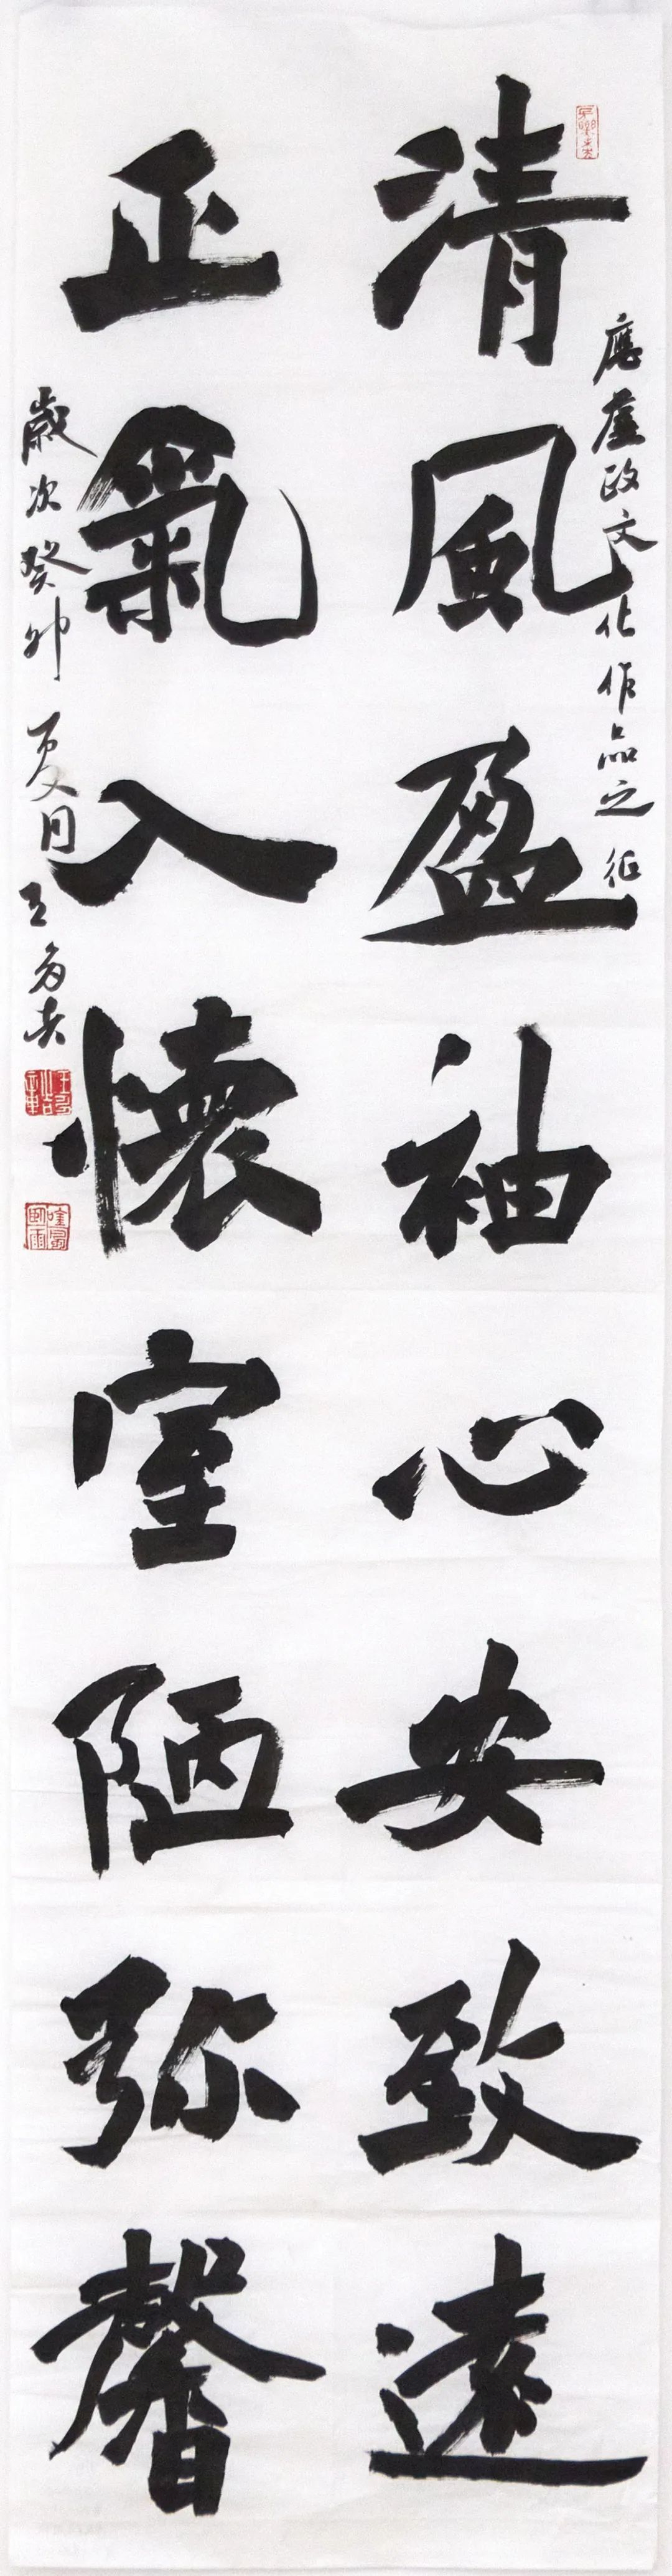 應廉政文化作品之征
清風盈袖心安致遠
正氣入懷室陋弥馨
歲次癸卯夏月王多吉